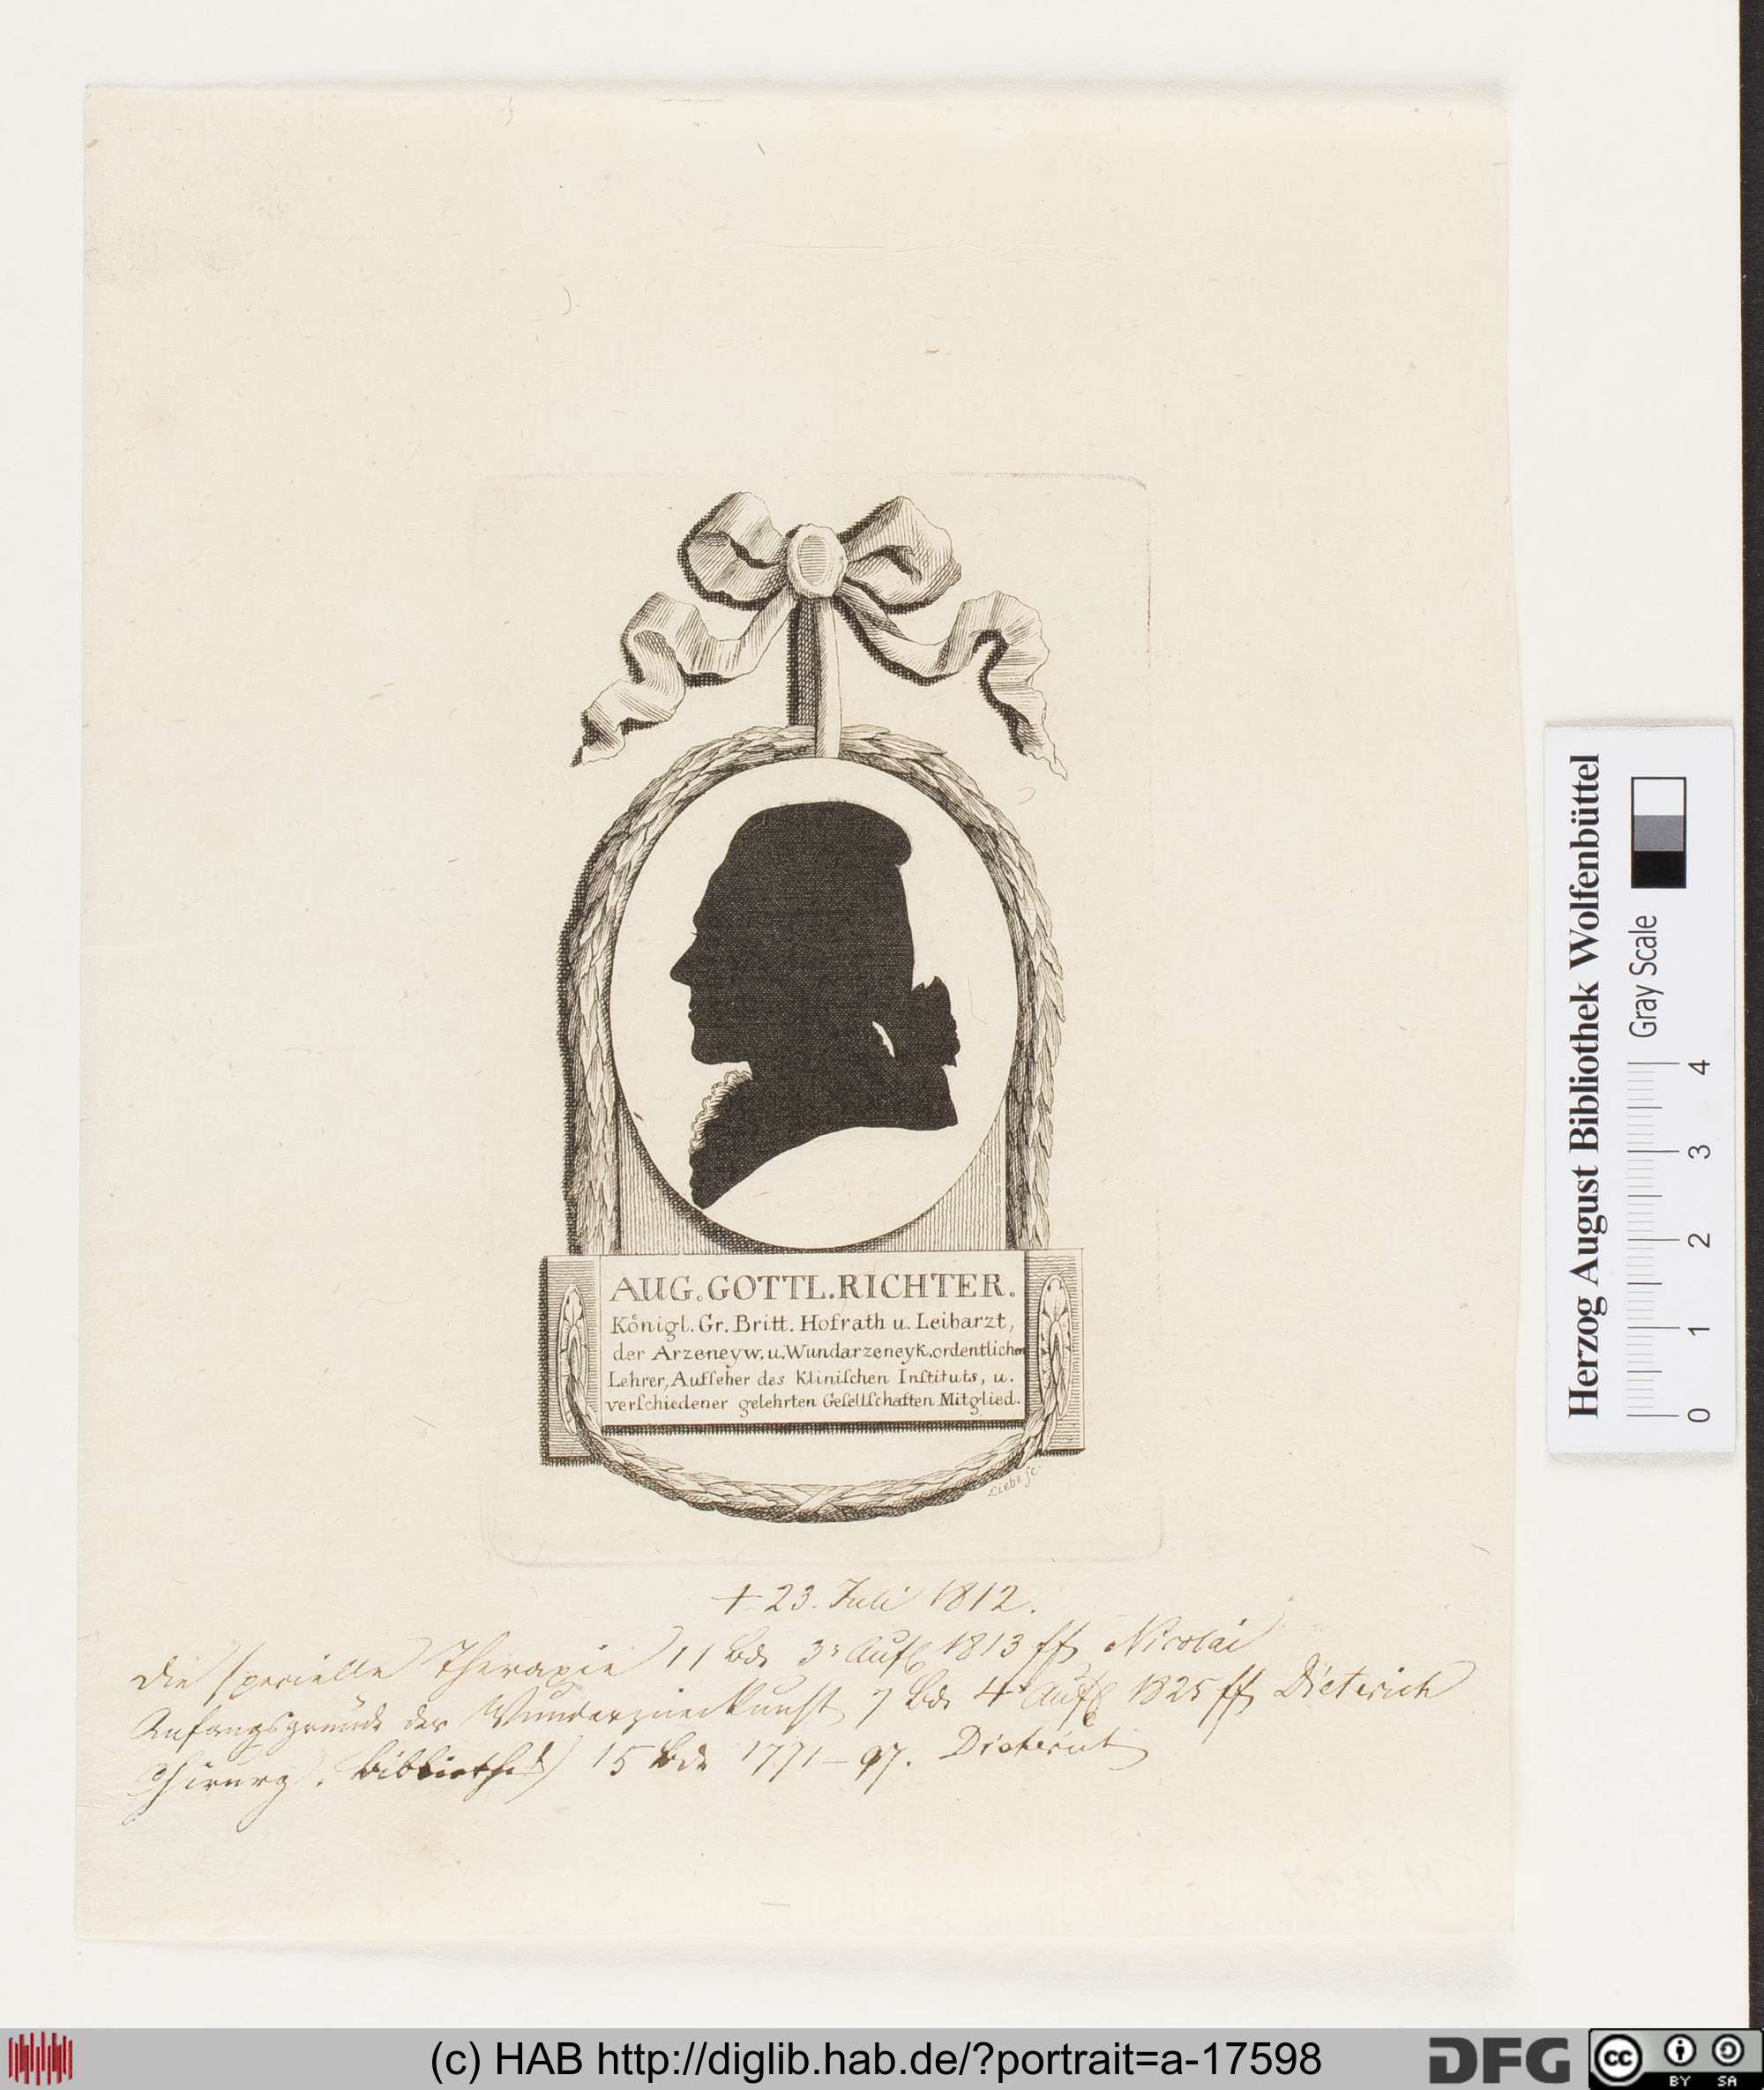 AUG. GOTTL. RICHTER.
Königl. Gr. Britt. Hofrath u. Leibarzt,
der Arzeneyw. u. Wundarzeneyk. ordentlicher
Lehrer, Aufſeher des Kliniſchen Inſtituts, u.
verſchiedener gelehrten Geſellſchaften Mitglied.
Liebe ſc.
† 23. Juli 1812.
Die specielle Therapie 11 Bde 3e Aufl 1813 ff Nicolai
Anfangsgründe der Wundarzneikunst 7 Bde 4e Aufl 1825 ff Dieterich
Chirurg. Bibliothek 15 Bde 1771–97. Dieterich
Herzog August Bibliothek Wolfenbüttel
Gray Scale
0 1 2 3 4
(c) HAB http://diglib.hab.de/?portrait=a-17598
DFG
cc BY SA